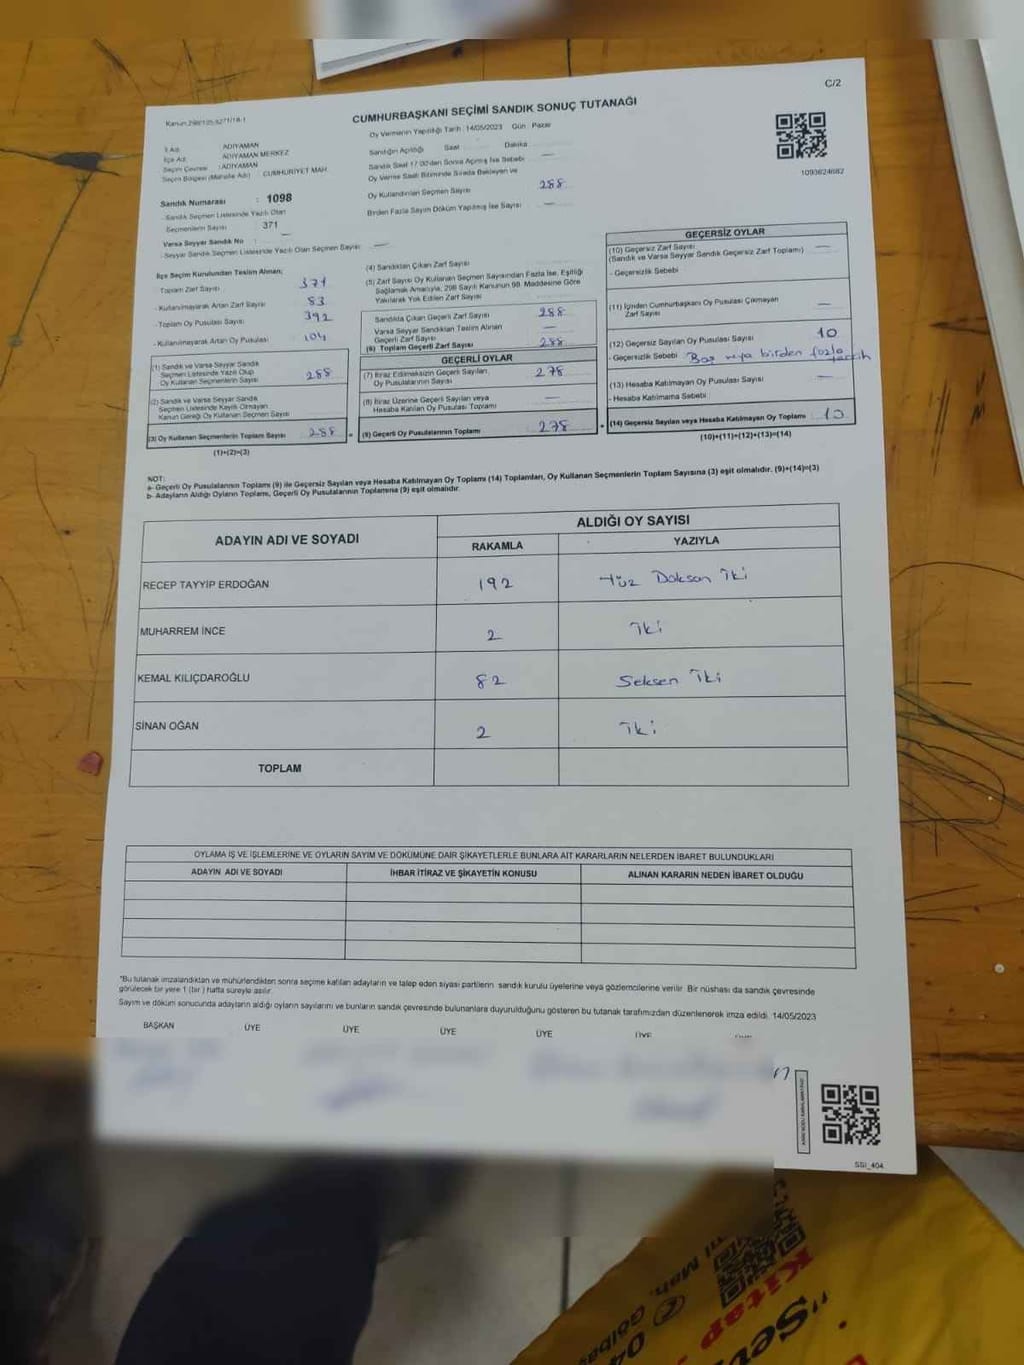 C/2
Kanun 298/105-5271/18-1
CUMHURBAŞKANI SEÇİMİ SANDIK SONUÇ TUTANAĞI
Oy Vermenin Yapıldığı Tarih :14/05/2023 Gün : Pazar
İl Adı : ADIYAMAN
İlçe Adı : ADIYAMAN MERKEZ
Seçim Çevresi : ADIYAMAN
Seçim Bölgesi (Mahalle Adı) : CUMHURİYET MAH.
Sandık Numarası : 1098
- Sandık Seçmen Listesinde Yazılı Olan
Seçmenlerin Sayısı 371
Varsa Seyyar Sandık No : —
- Seyyar Sandık Seçmen Listesinde Yazılı Olan Seçmen Sayısı —
Sandığın Açıldığı Saat Dakika
Sandık Saat 17.00'den Sonra Açılmış İse Sebebi —
Oy Verme Saati Bitiminde Sırada Bekleyen ve
Oy Kullandırılan Seçmen Sayısı 288
Birden Fazla Sayım Döküm Yapılmış İse Sayısı —
1093624682
İlçe Seçim Kurulundan Teslim Alınan;
Toplam Zarf Sayısı 371
- Kullanılmayarak Artan Zarf Sayısı 83
- Toplam Oy Pusulası Sayısı 392
- Kullanılmayarak Artan Oy Pusulası 104
(1) Sandık ve Varsa Seyyar Sandık
Seçmen Listesinde Yazılı Olup
Oy Kullanan Seçmenlerin Sayısı 288
(2) Sandık ve Varsa Seyyar Sandık
Seçmen Listesinde Kayıtlı Olmayan
Kanun Gereği Oy Kullanan Seçmen Sayısı
(3) Oy Kullanan Seçmenlerin Toplam Sayısı 288 =
(1)+(2)=(3)
(4) Sandıktan Çıkan Zarf Sayısı
(5) Zarf Sayısı Oy Kullanan Seçmen Sayısından Fazla İse, Eşitliği
Sağlamak Amacıyla, 298 Sayılı Kanunun 98. Maddesine Göre
Yakılarak Yok Edilen Zarf Sayısı
Sandıkta Çıkan Geçerli Zarf Sayısı 288
Varsa Seyyar Sandıktan Teslim Alınan
Geçerli Zarf Sayısı —
(6) Toplam Geçerli Zarf Sayısı 288
GEÇERLİ OYLAR
(7) İtiraz Edilmeksizin Geçerli Sayılan
Oy Pusulalarının Sayısı 278
(8) İtiraz Üzerine Geçerli Sayılan veya
Hesaba Katılan Oy Pusulası Toplamı —
(9) Geçerli Oy Pusulalarının Toplamı 278 +
GEÇERSİZ OYLAR
(10) Geçersiz Zarf Sayısı —
(Sandık ve Varsa Seyyar Sandık Geçersiz Zarf Toplamı)
- Geçersizlik Sebebi
(11) İçinden Cumhurbaşkanı Oy Pusulası Çıkmayan
Zarf Sayısı —
(12) Geçersiz Sayılan Oy Pusulası Sayısı 10
- Geçersizlik Sebebi Boş veya birden fazla tercih
(13) Hesaba Katılmayan Oy Pusulası Sayısı —
- Hesaba Katılmama Sebebi
(14) Geçersiz Sayılan veya Hesaba Katılmayan Oy Toplamı 10
(10)+(11)+(12)+(13)=(14)
NOT:
a- Geçerli Oy Pusulasının Toplamı (9) ile Geçersiz Sayılan veya Hesaba Katılmayan Oy Toplamı (14) Toplamları, Oy Kullanan Seçmenlerin Toplam Sayısına (3) eşit olmalıdır. (9)+(14)=(3)
b- Adayların Aldığı Oyların Toplamı, Geçerli Oy Pusulalarının Toplamına (9) eşit olmalıdır.
ADAYIN ADI VE SOYADI
ALDIĞI OY SAYISI
RAKAMLA YAZIYLA
RECEP TAYYİP ERDOĞAN 192 Yüz Doksan İki
MUHARREM İNCE 2 İki
KEMAL KILIÇDAROĞLU 82 Seksen İki
SİNAN OĞAN 2 İki
TOPLAM
OYLAMA İŞ VE İŞLEMLERİNE VE OYLARIN SAYIM VE DÖKÜMÜNE DAİR ŞİKAYETLERLE BUNLARA AİT KARARLARIN NELERDEN İBARET BULUNDUKLARI
ADAYIN ADI VE SOYADI İHBAR İTİRAZ VE ŞİKAYETİN KONUSU ALINAN KARARIN NEDEN İBARET OLDUĞU
*Bu tutanak imzalandıktan ve mühürlendikten sonra seçime katılan adayların ve talep eden siyasi partilerin sandık kurulu üyelerine veya gözlemcilerine verilir. Bir nüshası da sandık çevresinde
görülecek bir yere 1 (bir) hafta süreyle asılır.
Sayım ve döküm sonucunda adayların aldığı oyların sayılarını ve bunların sandık çevresinde bulunanlara duyurulduğunu gösteren bu tutanak tarafımızdan düzenlenerek imza edildi. 14/05/2023
BAŞKAN ÜYE ÜYE ÜYE ÜYE ÜYE
SSI_404
Kitap
"Sev
Gölbaş